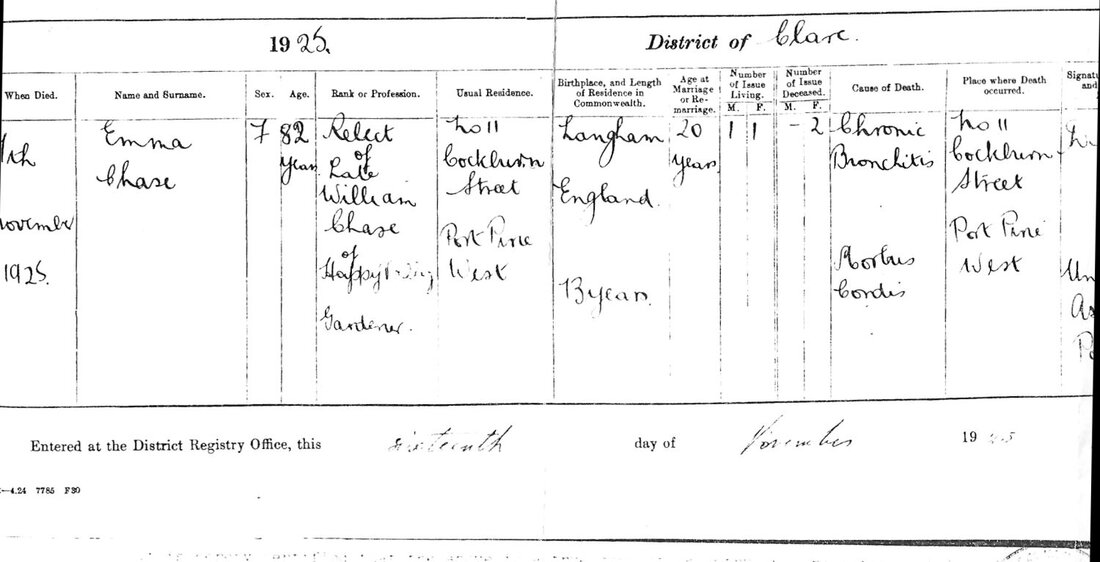 1925. District of Clare.
When Died. Name and Surname. Sex. Age. Rank or Profession. Usual Residence. Birthplace, and Length of Residence in Commonwealth. Age at Marriage or Re-marriage. Number of Issue Living. M. F. Number of Issue Deceased. M. F. Cause of Death. Place where Death occurred. Signatu
and
November
1925.
Emma
Chase
F
82
Years
Relect
of
Late
William
Chase
of
Gardener.
No 11
Cockburn
Street
Port Pirie
West
Langham
England.
13 years.
20
years.
1 1
- 2
Chronic
Bronchitis
Morbus
Cordis
No 11
Cockburn
Street
Port Pirie
West
Un
As
Po
Entered at the District Registry Office, this sixteenth day of November 1925
—4.24 7785 F30